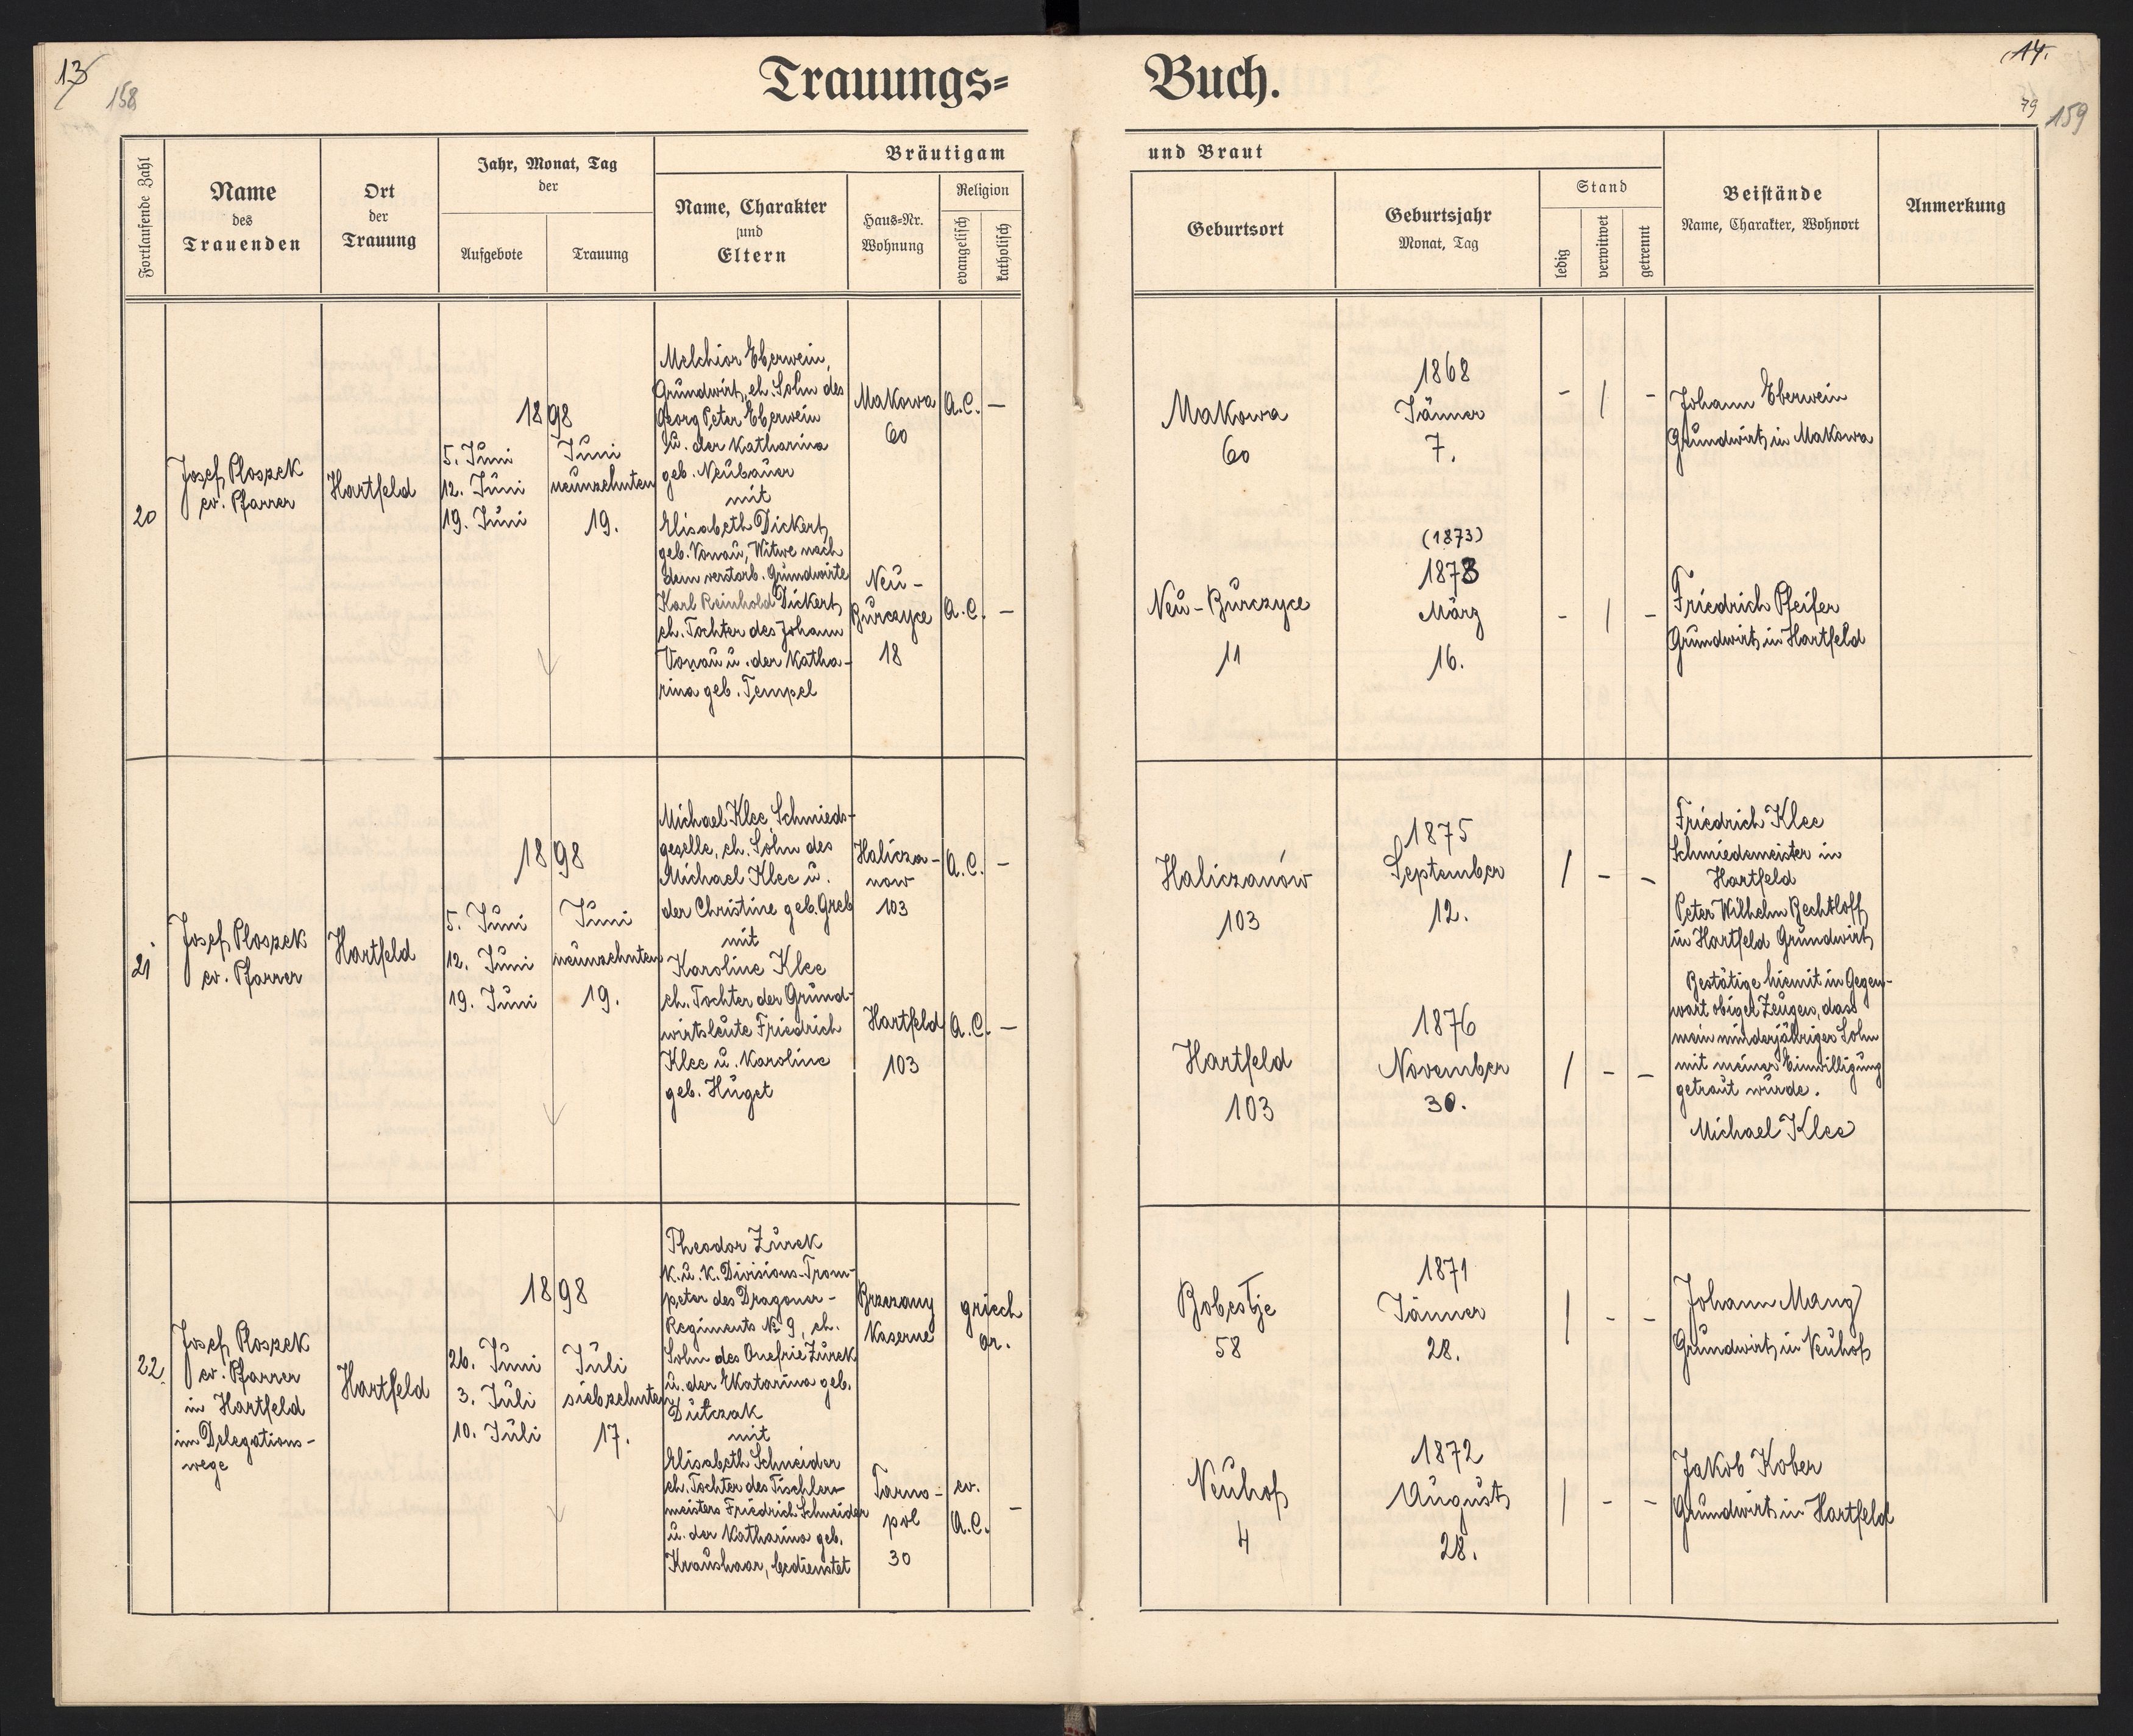 13
158
Trauungs=
Buch.
14.
79
159
Fortlaufende Zahl
Name
des
Trauenden
Ort
der
Trauung
Jahr, Monat, Tag
der
Aufgebote
Trauung
Bräutigam
Name, Charakter
und
Eltern
Haus=Nr.
Wohnung
Religion
evangelisch
katholisch
und Braut
Geburtsort
Geburtsjahr
Monat, Tag
Stand
ledig
verwitwet
getrennt
Beistände
Name, Charakter, Wohnort
Anmerkung
20
Josef Ploszek
ev. Pfarrer
Hartfeld
1898
5. Juni
12. Juni
19. Juni
Juni
neunzehnten
19.
Melchior Eberwein,
Grundwirt, eh. Sohn des
Georg Peter Eberwein
u. der Katharina
geb. Neubauer
mit
Elisabeth Dickert
geb. Vonau, Witwe nach
dem verstorb. Grundwirte
Karl Reinhold Dickert
eh. Tochter des Johann
Vonau u. der Katha-
rina geb. Tempel
Makowa
60
A.C. —
Neu -
Burczyce
18
A.C. —
Makowa
60
1868
Jänner
7.
- / -
Johann Eberwein
Grundwirt in Makowa
Neu - Burczyce
11
(1873)
1873
März
16.
- / -
Friedrich Pfeifer
Grundwirt in Hartfeld
21
Josef Ploszek
ev. Pfarrer
Hartfeld
1898
5. Juni
12. Juni
19. Juni
Juni
neunzehnten
19.
Michael Klee Schmieds-
geselle, eh. Sohn des
Michael Klee u.
der Christine geb. Greb
mit
Karoline Klee
eh. Tochter der Grund-
wirtsleute Friedrich
Klee u. Karoline
geb. Huget
Halicza-
now
103
A.C. —
Hartfeld
103
A.C. —
Haliczanów
103
1875
September
12.
/ - -
Hartfeld
103
1876
November
30.
/ - -
Friedrich Klee
Schmiedemeister in
Hartfeld
Peter Wilhelm Rechtloff
in Hartfeld Grundwirt
Bestätige hiemit in Gegen-
wart obiger Zeugen, dass
mein minderjähriger Sohn
mit meiner Einwilligung
getraut wurde.
Michael Klee
22.
Josef Ploszek
ev. Pfarrer
in Hartfeld
im Delegations-
wege
Hartfeld
1898
26. Juni
3. Juli
10. Juli
Juli
siebzehnten
17.
Theodor Zurek
k. u. k. Divisions-Trom-
peter des Dragoner-
Regiments № 9, eh.
Sohn des Onefrie Zurek
u. der Ekatarina geb.
Dutczak
mit
Elisabeth Schneider
eh. Tochter des Tischler-
meisters Friedrich Schneider
u. der Katharina geb.
Kraushaar, bedienstet
Brzezany
Kaserne
griech
or.
Tarno-
pol
30
ev.
A.C. —
Bobestje
58
1871
Jänner
28.
/ - -
Johann Mang
Grundwirt in Neuhof
Neuhof
4
1872
August
28.
/ - -
Jakob Kober
Grundwirt in Hartfeld